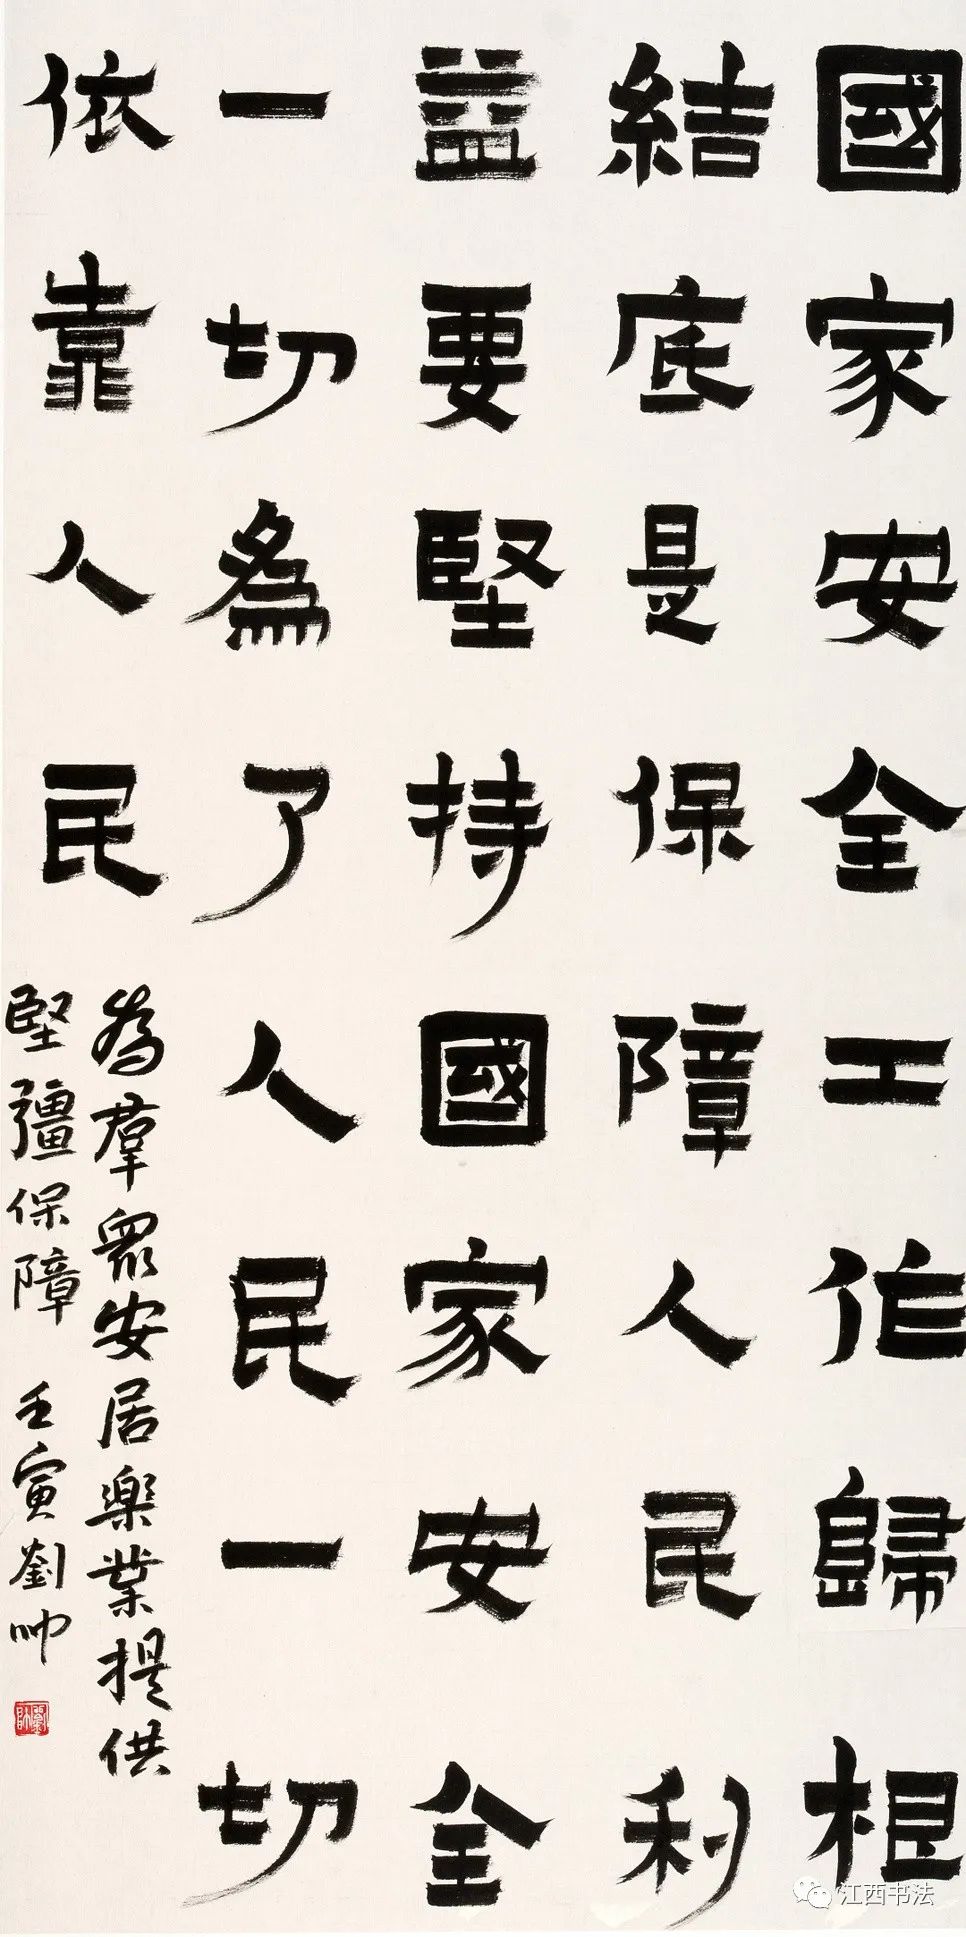 國家安全工作歸根
結底是保障人民利
益要堅持國家安全
一切為了人民一切
依靠人民
為羣眾安居樂業提供
堅彊保障 壬寅劉帅
江西书法